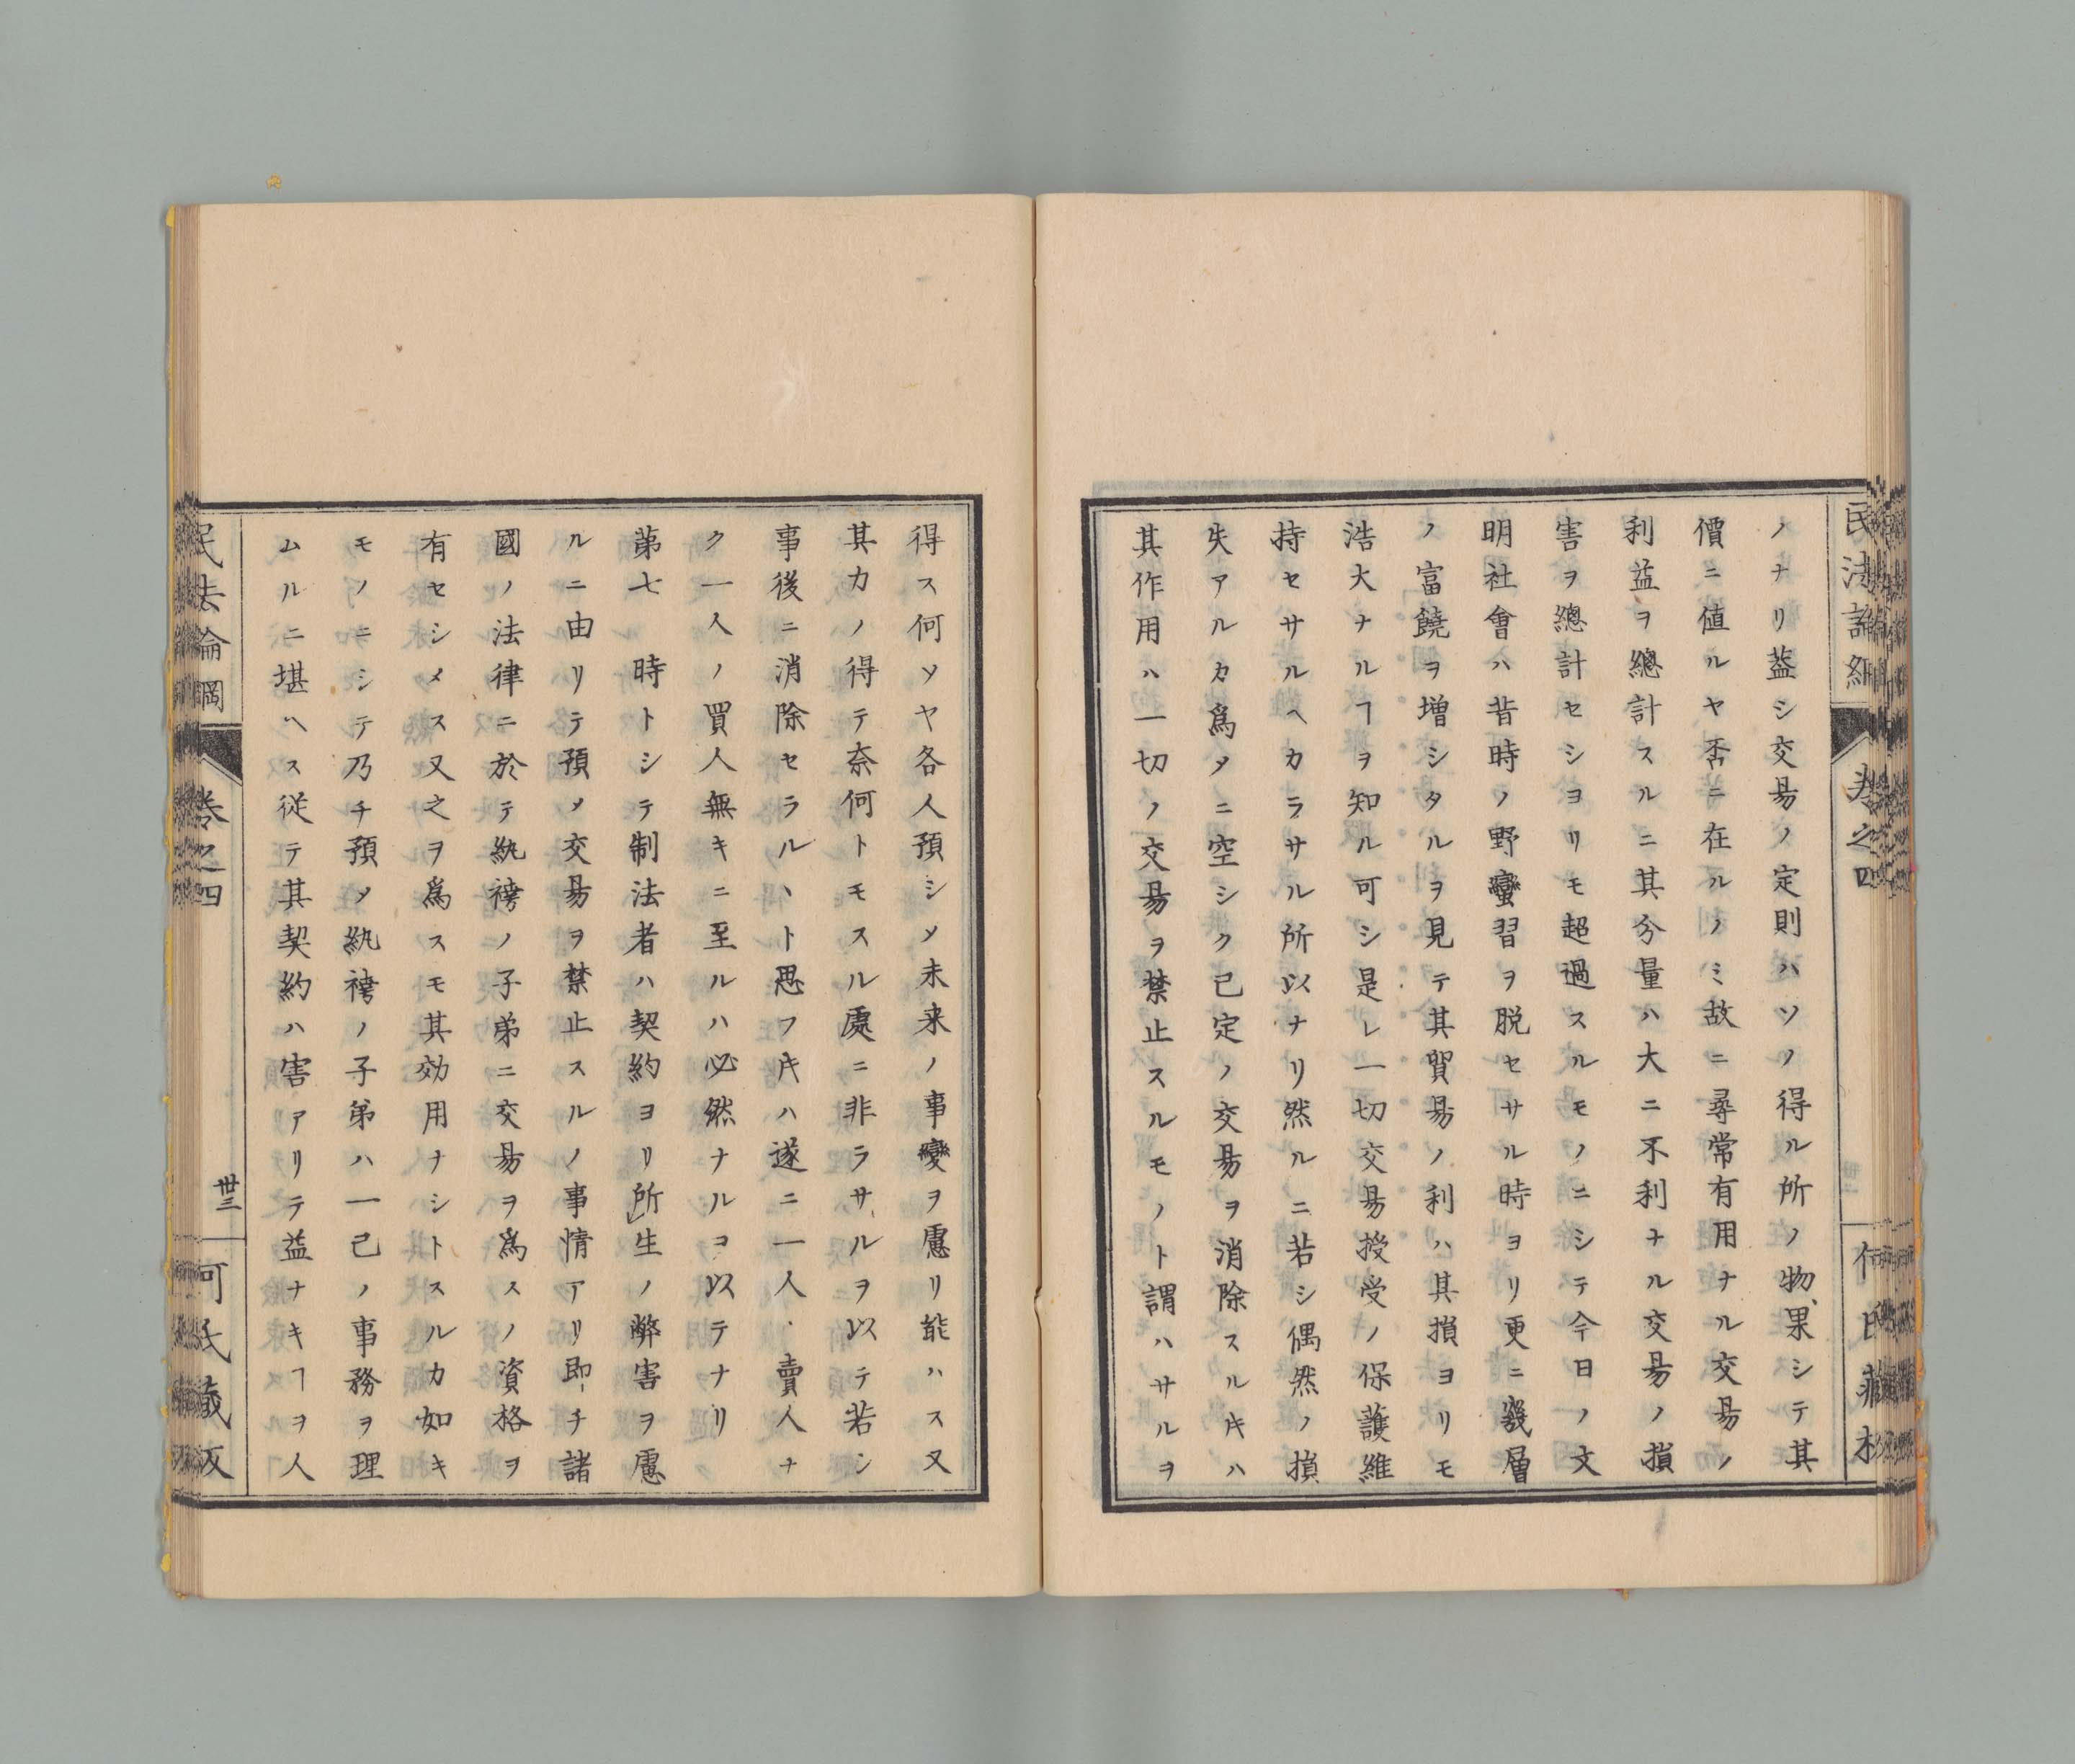 民法論綱
卷之四
何氏藏板
ノナリ葢シ交易ノ定則ハソノ得ル所ノ物果シテ其
價ニ値ルヤ否ニ在ルノミ故ニ尋常有用ナル交易ノ
利益ヲ總計スルニ其分量ハ大ニ不利ナル交易ノ損
害ヲ總計セシヨリモ超過スルモノニシテ今日ノ文
明社會ハ昔時ノ野蠻習ヲ脱セサル時ヨリ更ニ幾層
ノ富饒ヲ增シタルヲ見テ其貿易ノ利ハ其損ヨリモ
浩大ナルヿヲ知ル可シ是レ一切交易授受ノ保護維
持セサルヘカラサル所以ナリ然ルニ若シ偶然ノ損
失アルカ爲メニ空シク已定ノ交易ヲ消除スル𪜈ハ
其作用ハ一切ノ交易ヲ禁止スルモノト謂ハサルヲ
得ス何ソヤ各人預シメ未来ノ事變ヲ慮リ能ハス又
其力ノ得テ奈何トモスル處ニ非ラサルヲ以テ若シ
事後ニ消除セラルヽト思フ𪜈ハ遂ニ一人ノ賣人ナ
ク一人ノ買人無キニ至ルハ必然ナルヲ以テナリ
第七　時トシテ制法者ハ契約ヨリ所生ノ弊害ヲ慮
ルニ由リテ預メ交易ヲ禁止スルノ事情アリ即チ諸
國ノ法律ニ於テ紈袴ノ子弟ニ交易ヲ爲スノ資格ヲ
有セシメス又之ヲ爲スモ其効用ナシトスルカ如キ
モノニシテ乃チ預メ紈袴ノ子弟ハ一己ノ事務ヲ理
ムルニ堪ヘス従テ其契約ハ害アリテ益ナキヿヲ人
民法論綱
卷之四
卅三
何氏藏板